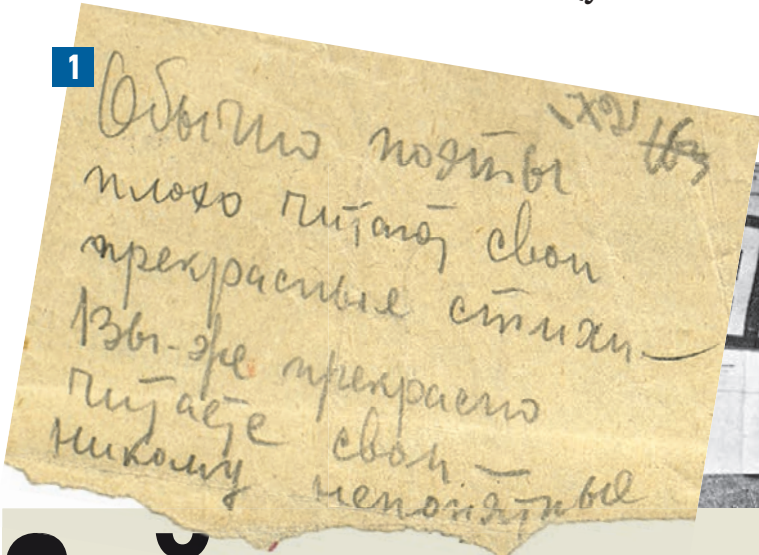 1
Обычно поэты
плохо читают свои
прекрасные стихи —
Вы-же прекрасно
читаете свои —
никому непонятные